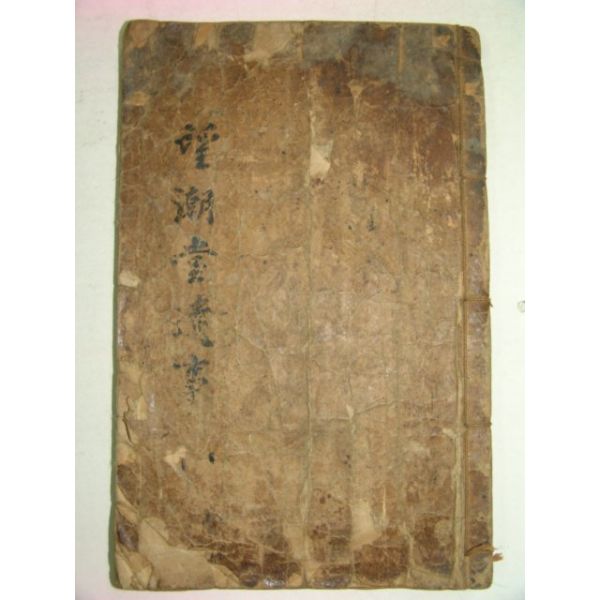 望潮堂遺事